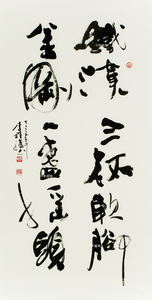 鐵漢三杯軟腳
金剛一盞搖頭